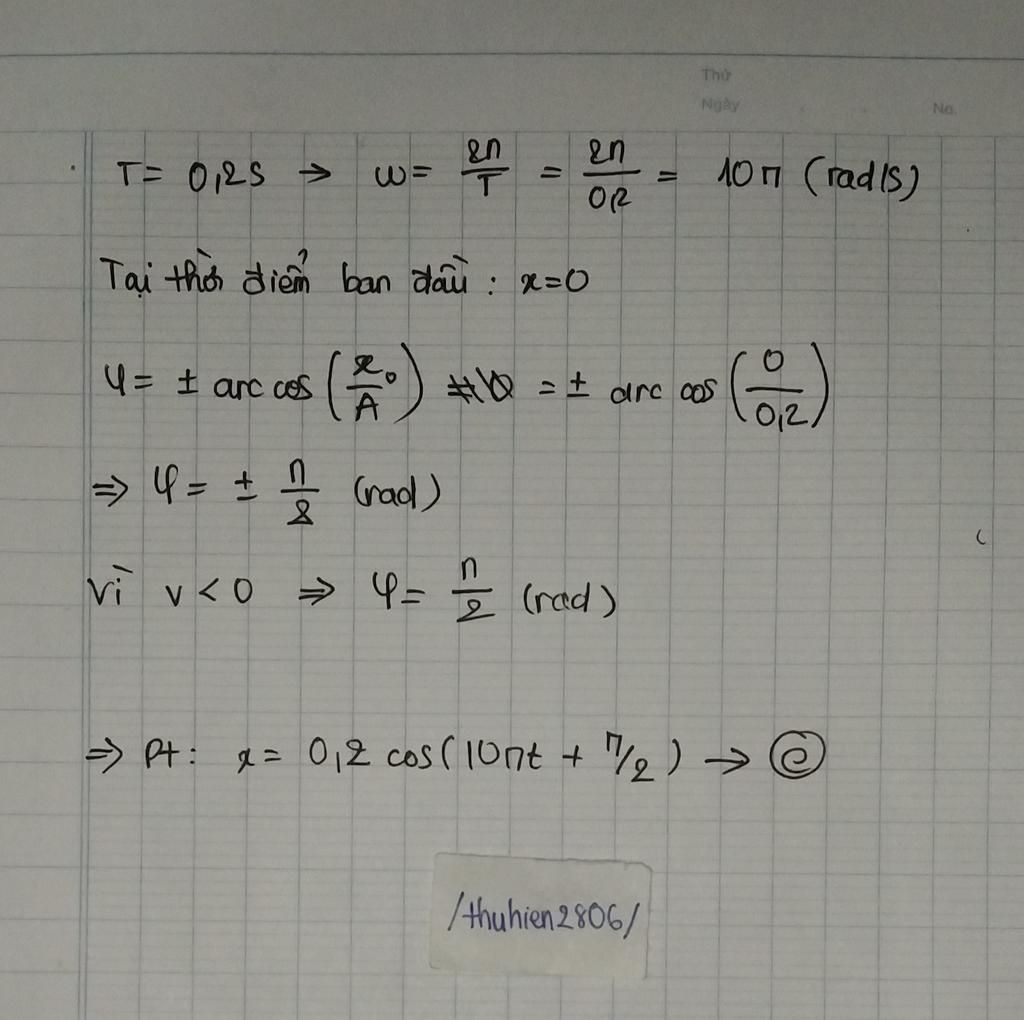 Thứ
Ngày
No.
T = 0,2s → ω = 2π/T = 2π/0,2 = 10π (rad/s)
Tại thời điểm ban đầu : x=0
φ = ± arc cos (x₀/A) = ± arc cos (0/0,2)
⇒ φ = ± π/2 (rad)
Vì v < 0 ⇒ φ = π/2 (rad)
⇒ Pt : x = 0,2 cos(10πt + π/2) → ⓒ
/thuhien2806/